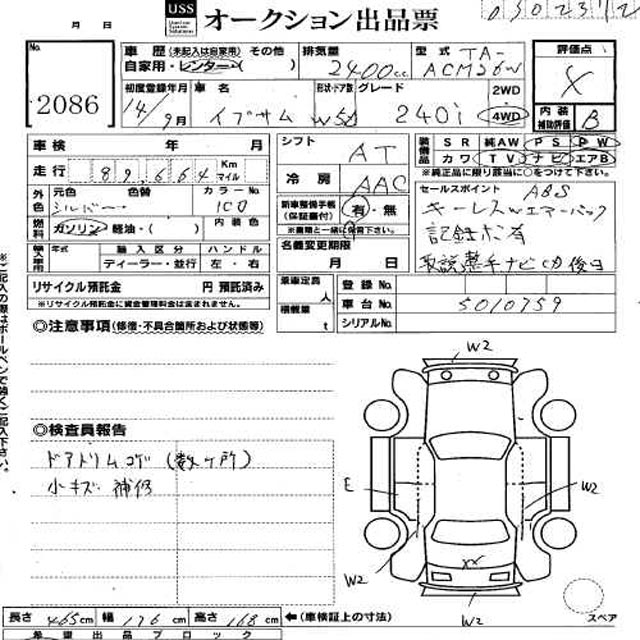 月 日 USS オークション出品票
No. 2086
車歴 (未記入は自家用) その他
自家用・レンター・( )
排気量 2400cc
型式 TA-ACM26W
評価点
内装補助評価 B
初度登録年月 14/9月
車名 イプサム
形状・ドア数 W5D
グレード 240i
2WD
4WD
車検 年 月
走行 89,664 Km マイル
外色 元色 色替 カラーNo.
シルバー 1C0
燃料 ガソリン・軽油・( ) 内装色
輸入車用 年式 輸入区分 ハンドル
ディーラー・並行 左・右
リサイクル預託金 円 預託済み
※リサイクル預託金に資金管理料金は含まれません。
シフト AT
冷房 AAC
新車整備手帳(保証書付) 有・無
※書類と一緒に保管下さい。
名義変更期限
月 日
乗車定員 人
積載量 t
装備品 SR 純AW PS PW
カワ TV ナビ エアB
※純正品に限り該当に○をつけて下さい。
セールスポイント ABS
キーレスwエアーバック
記録ボ有
取説整手ナビCD後日
登録No.
車台No. 5010759
シリアルNo.
◎注意事項 (修復・不具合箇所および状態等)
◎検査員報告
ドアトリムコゲ (数ヶ所)
小キズ 補修
W2
E
W2
W2
XX
W2
スペア
長さ 465cm 幅 176cm 高さ 168cm ←(車検証上の寸法)
希望出品ブロック
※ご記入の際はボールペンで強くご記入下さい。